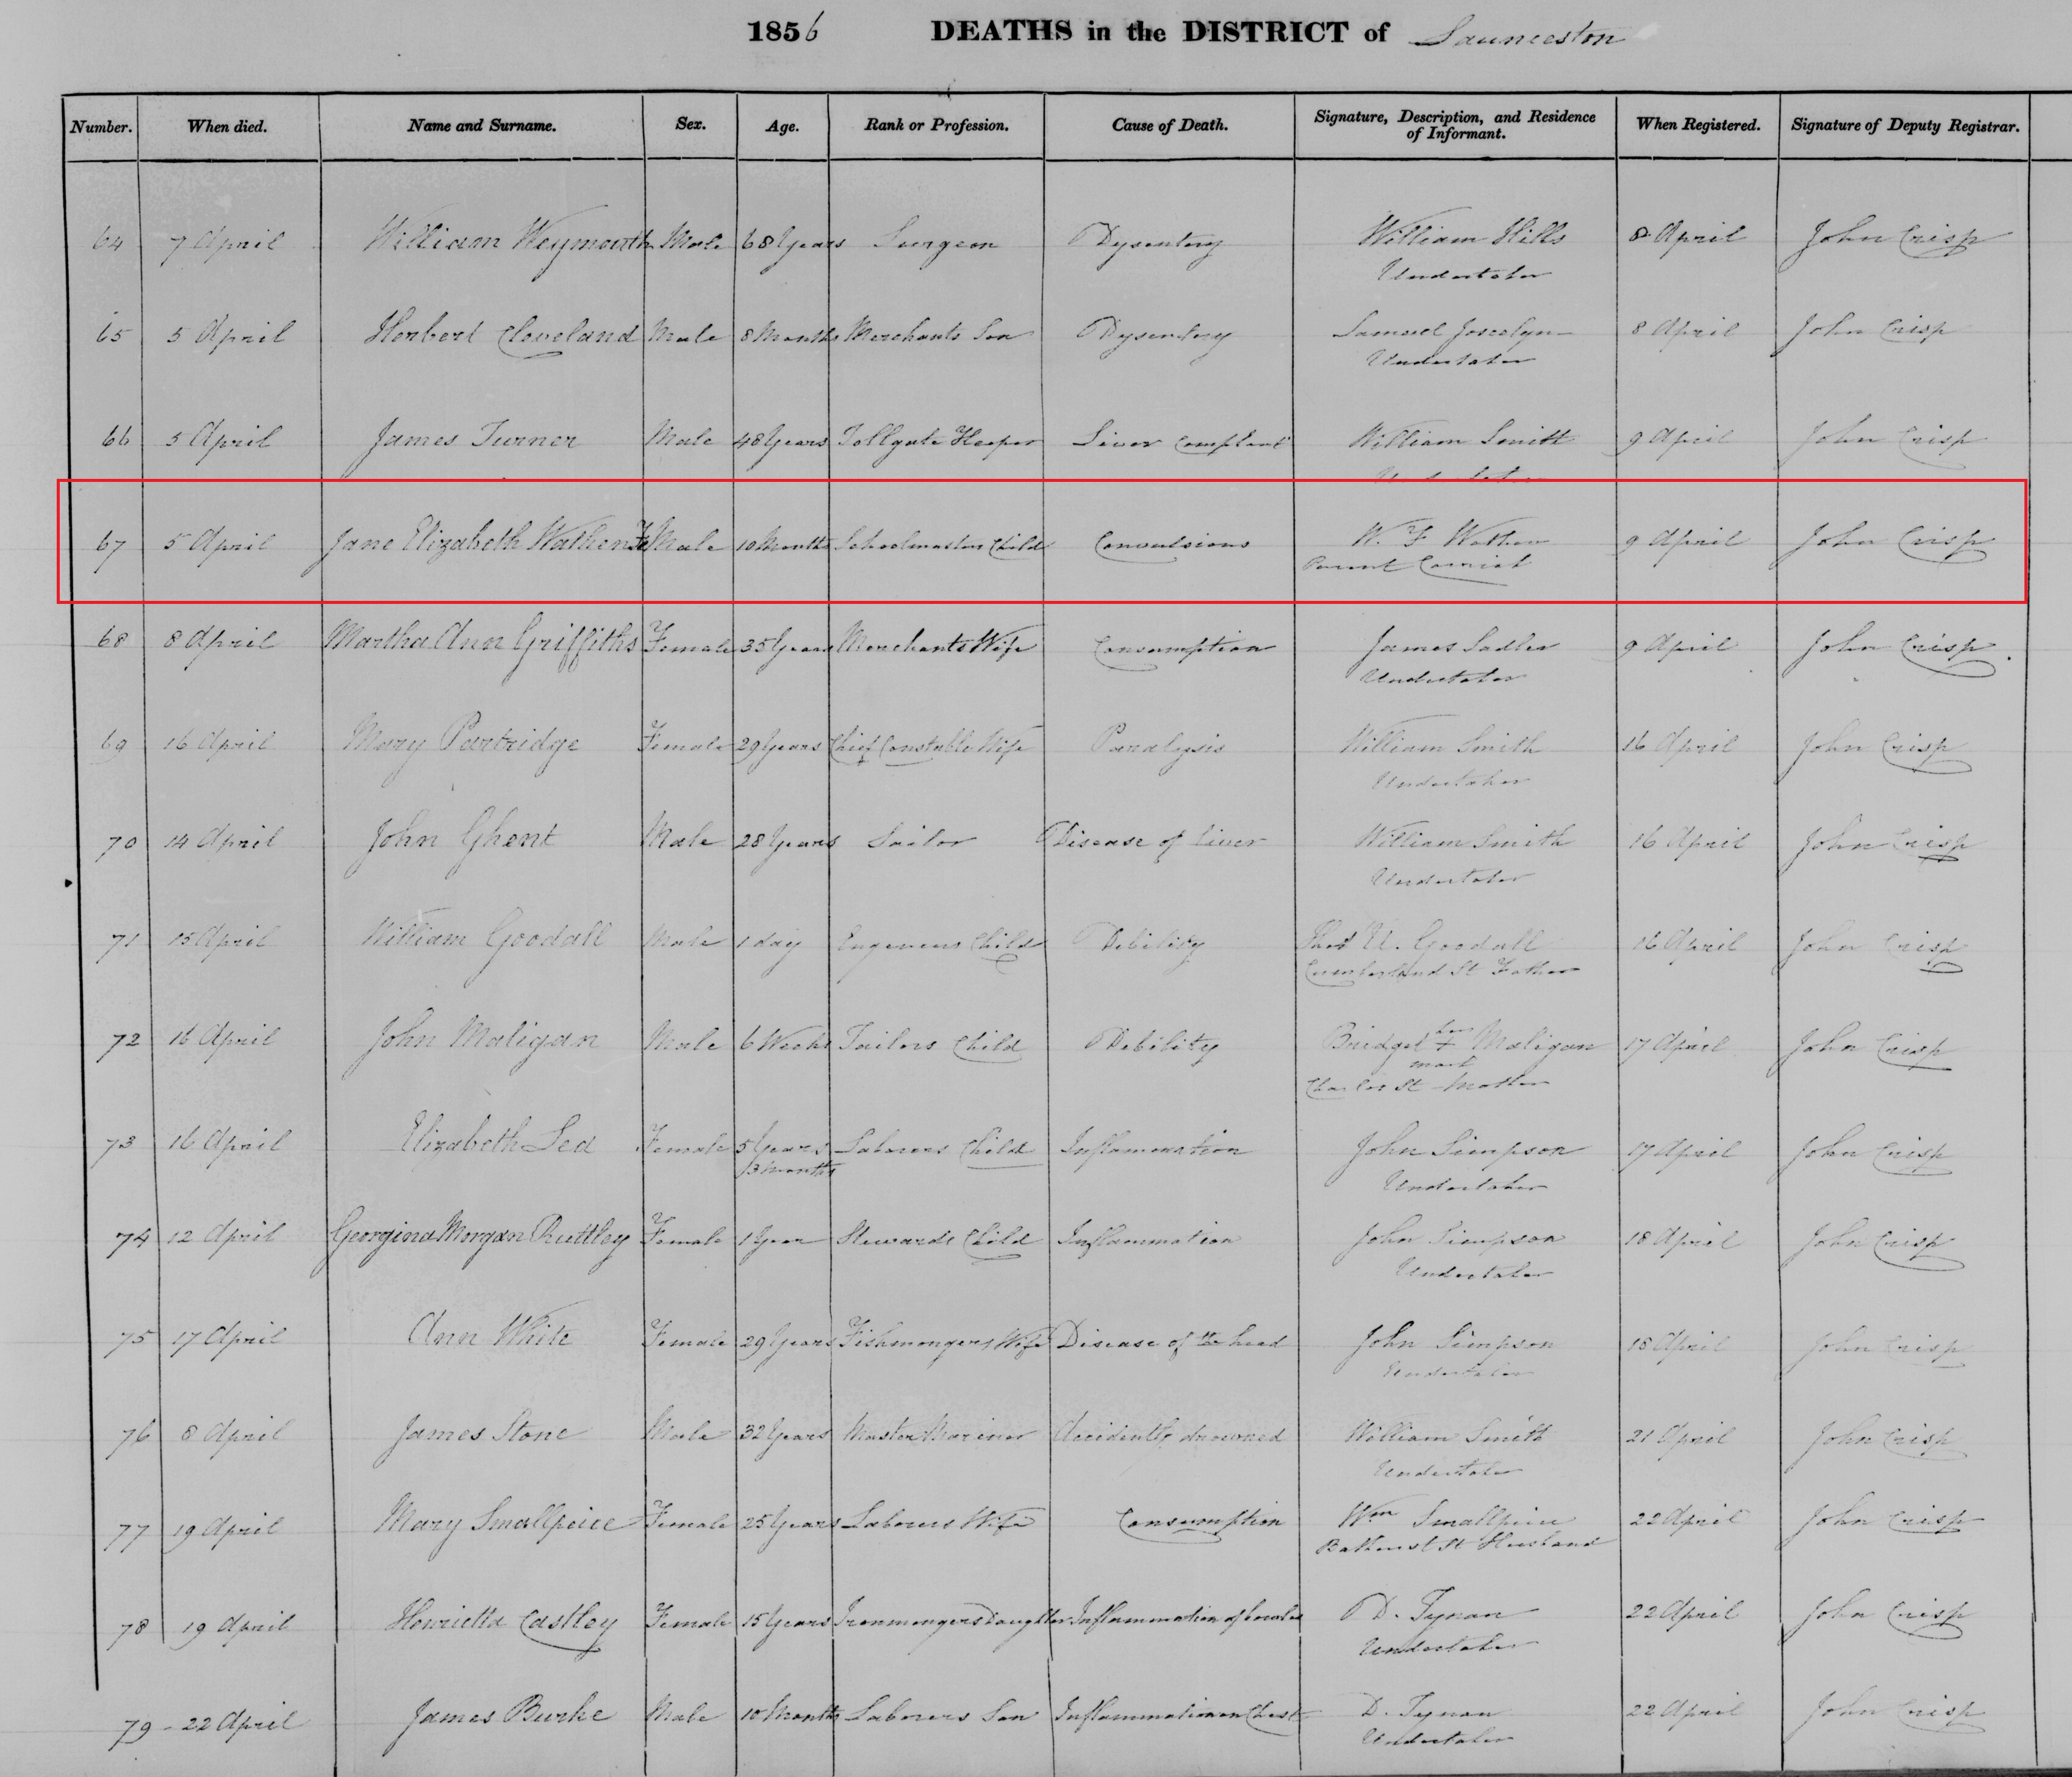 1856 DEATHS in the DISTRICT of Launceston
Number. When died. Name and Surname. Sex. Age. Rank or Profession. Cause of Death. Signature, Description, and Residence of Informant. When Registered. Signature of Deputy Registrar.
64 7 April William Weymouth Male 68 Years Surgeon Dysentery William Hills 8 April John Crisp
Undertaker
65 5 April Herbert Cleveland Male 8 Months Merchants Son Dysentery Samuel Joscelyn 8 April John Crisp
Undertaker
66 5 April James Turner Male 48 Years Tollgate Keeper Liver Complant William Smith 9 April John Crisp
Undertaker
67 5 April Jane Elizabeth Wathen FeMale 10 Months Schoolmasters Child Convulsions W. F Wathen 9 April John Crisp
Parent
68 8 April Martha Ann Griffiths Female 35 Years Merchants Wife Consumption James Sadler 9 April John Crisp
Undertaker
69 16 April Mary Partridge Female 29 Years Chief Constable Wife Paralysis William Smith 16 April John Crisp
Undertaker
70 14 April John Ghent Male 28 Years Sailor Disease of Liver William Smith 16 April John Crisp
Undertaker
71 15 April William Goodall Male 1 day Engeneers Child Debility Thos U. Goodall 16 April John Crisp
Cumberland St Father
72 16 April John Maligan Male 6 Weeks Tailors Child Debility Bridget her + Maligan 17 April John Crisp
mark
Charles St Mother
73 16 April Elizabeth Lea Female 5 Years Laborers Child Inflammation John Simpson 17 April John Crisp
/3 months Undertaker
74 12 April Georgina Morgan Ruttley Female 1 Year Stewards Child Inflammation John Simpson 18 April John Crisp
Undertaker
75 17 April Ann White Female 29 Years Fishmongers Wife Disease of the head John Simpson 18 April John Crisp
Undertaker
76 8 April James Stone Male 32 Years Master Mariner Accidently drowned William Smith 21 April John Crisp
Undertaker
77 19 April Mary Smallpeice Female 25 Years Laborers Wife Consumption Wm Smallpeice 22 April John Crisp
Bathurst St Husband
78 19 April Henrietta Castley Female 15 Years Ironmongers Daughter Inflammation of bowels D. Tynan 22 April John Crisp
Undertaker
79 - 22 April James Burke Male 10 Months Laborers Son Inflammation on Chest D. Tynan 22 April John Crisp
Undertaker